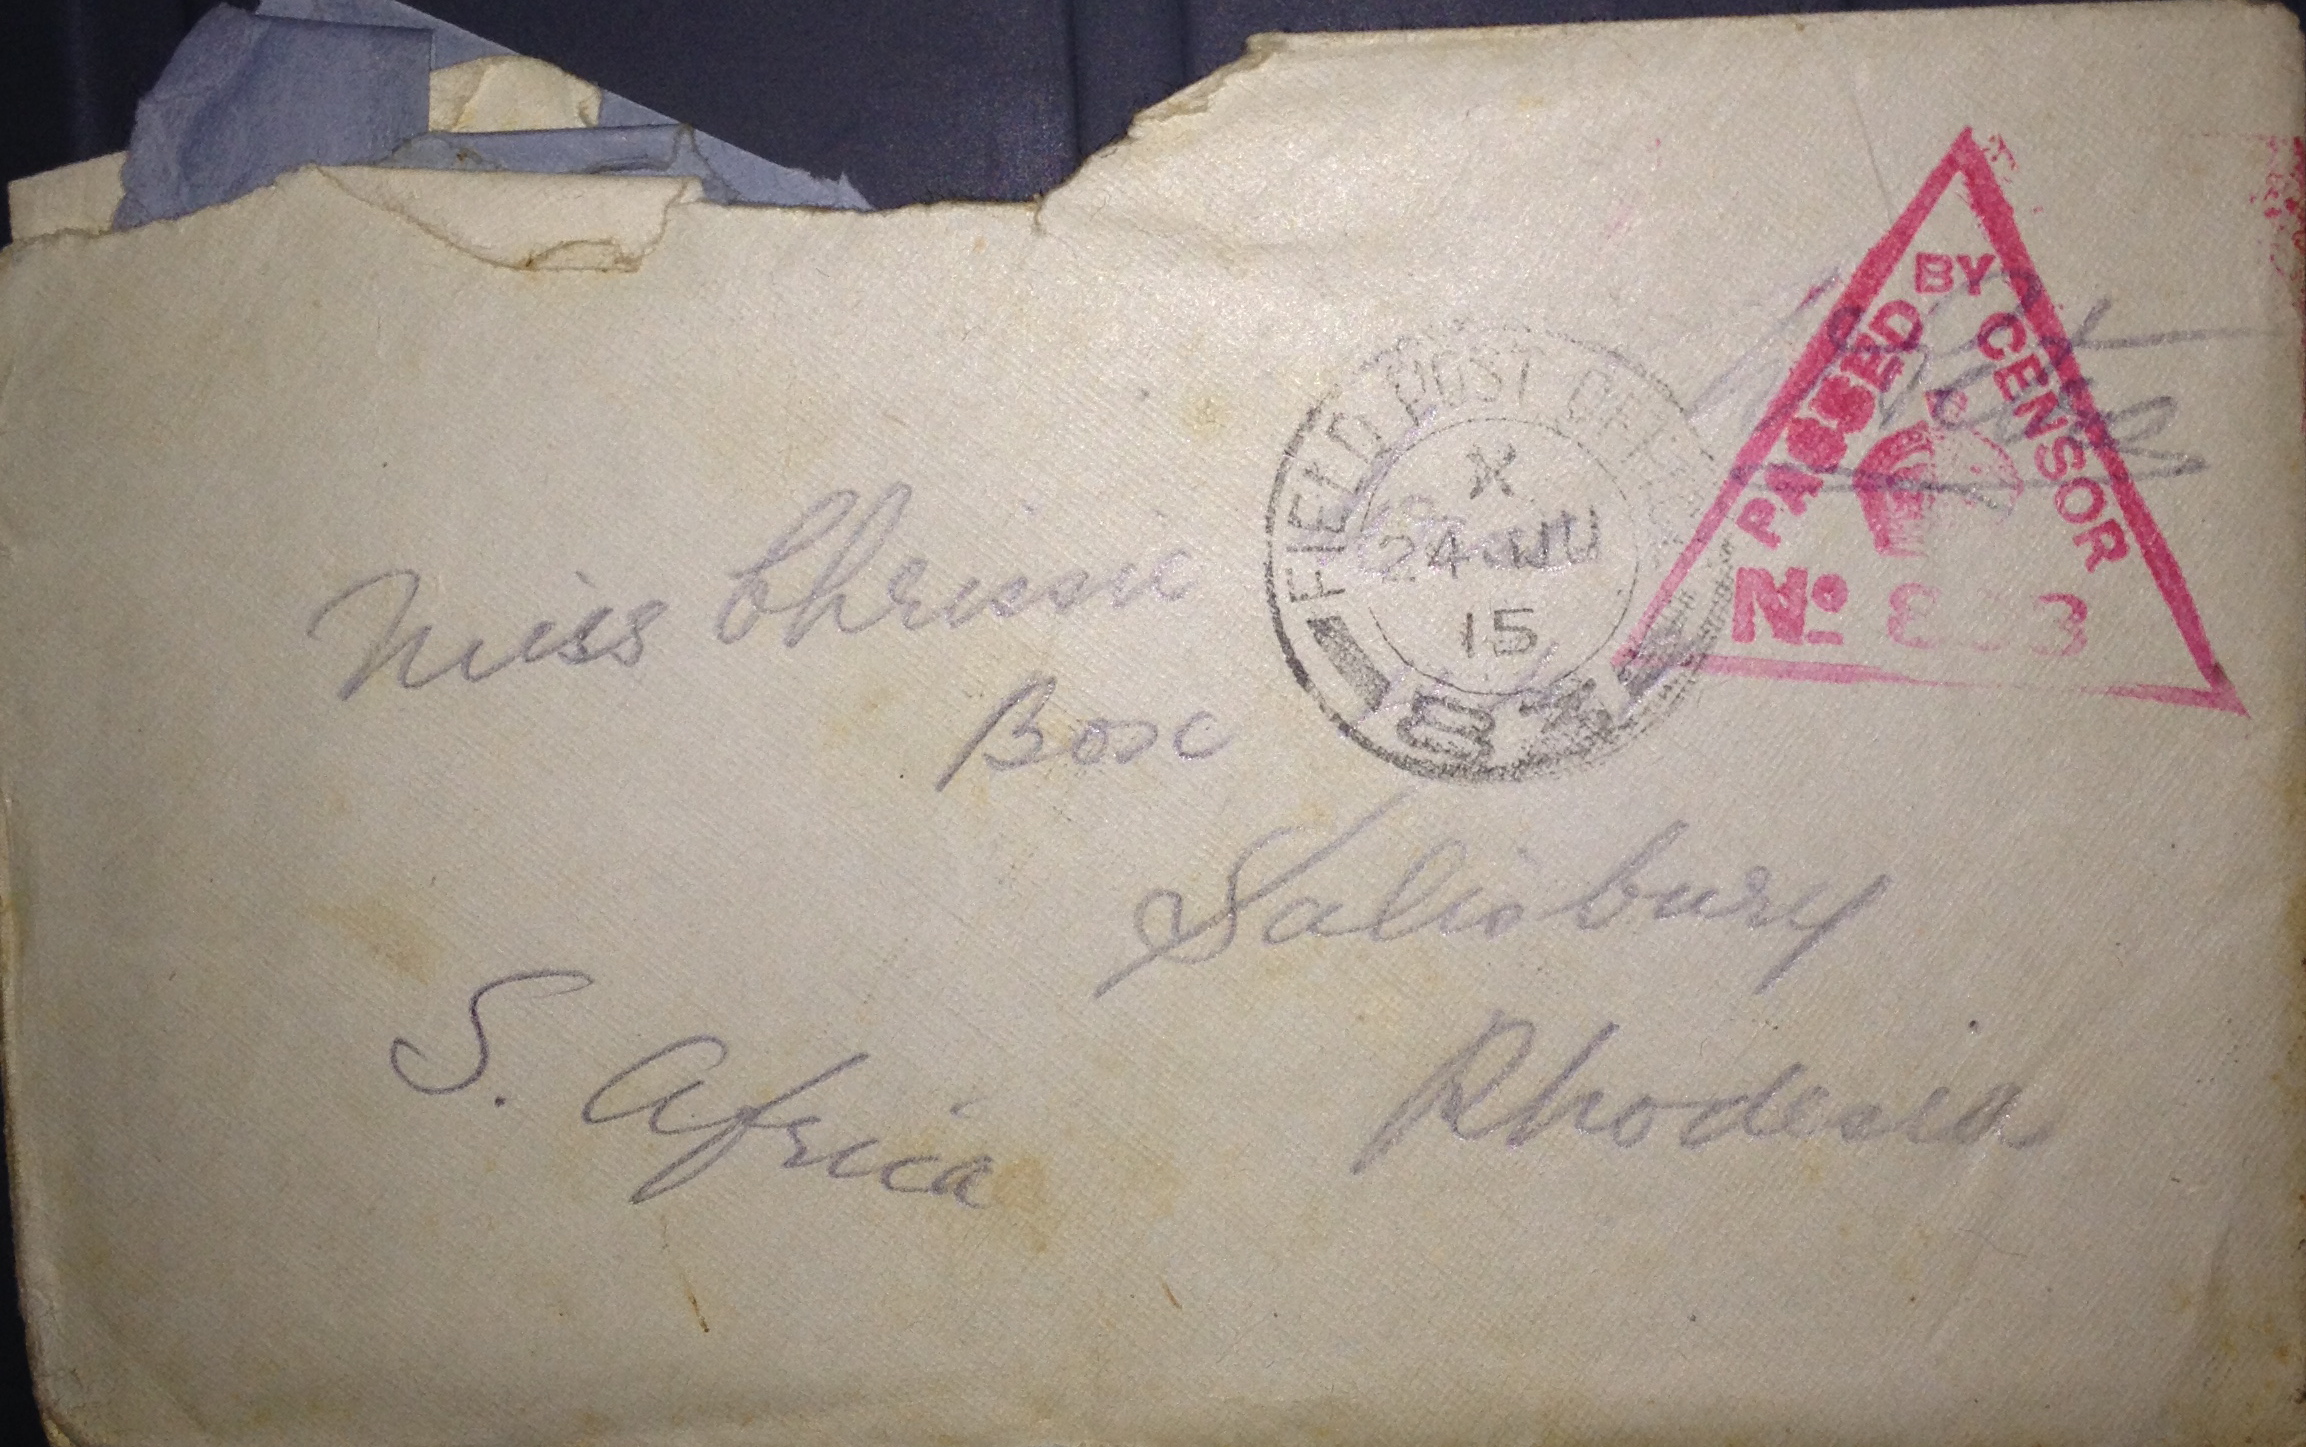 PASSED BY CENSOR
No 8 3
FIELD POST OFFICE
X
24 JU
15
Miss Chrissie
Box
Salisbury
Rhodesia
S. Africa